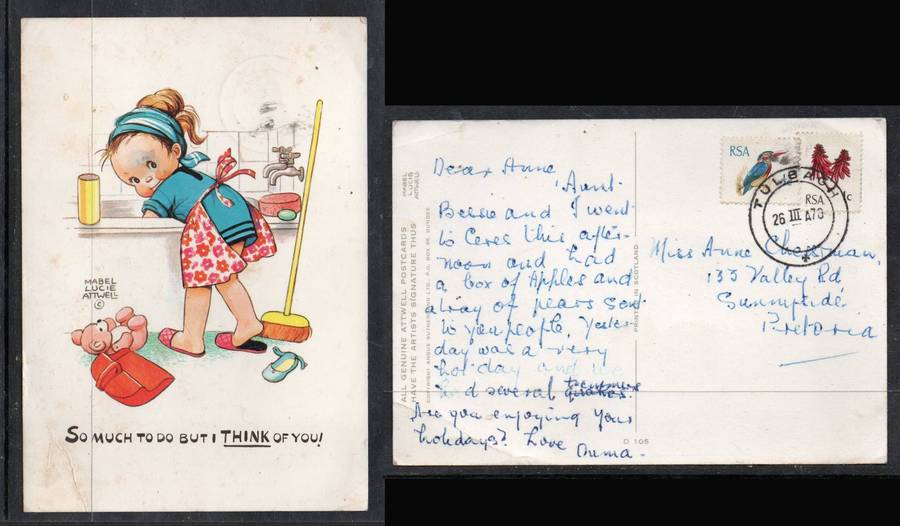 MABEL
LUCIE
ATTWELL
©
SO MUCH TO DO BUT I THINK OF YOU!
Dear Anne,
Aunt
Bessie and I went
to Ceres this after-
noon and had
a box of Apples and
a tray of pears sent
to you people. Yester-
day was a very
hot day and we
had several tremmors
quakes.
Are you enjoying your
holidays? Love
Ouma.
MABEL
LUCIE
ATTWELL
ALL GENUINE ATTWELL POSTCARDS
HAVE THE ARTISTS SIGNATURE THUS
COPYRIGHT ANGUS LTD., P.O. BOX DUNDEE
PRINTED IN SCOTLAND
D 105
RSA
RSA
c
TULBAGH
26 III A70
Miss Anne
Valley Rd
Sunnyside
Pretoria